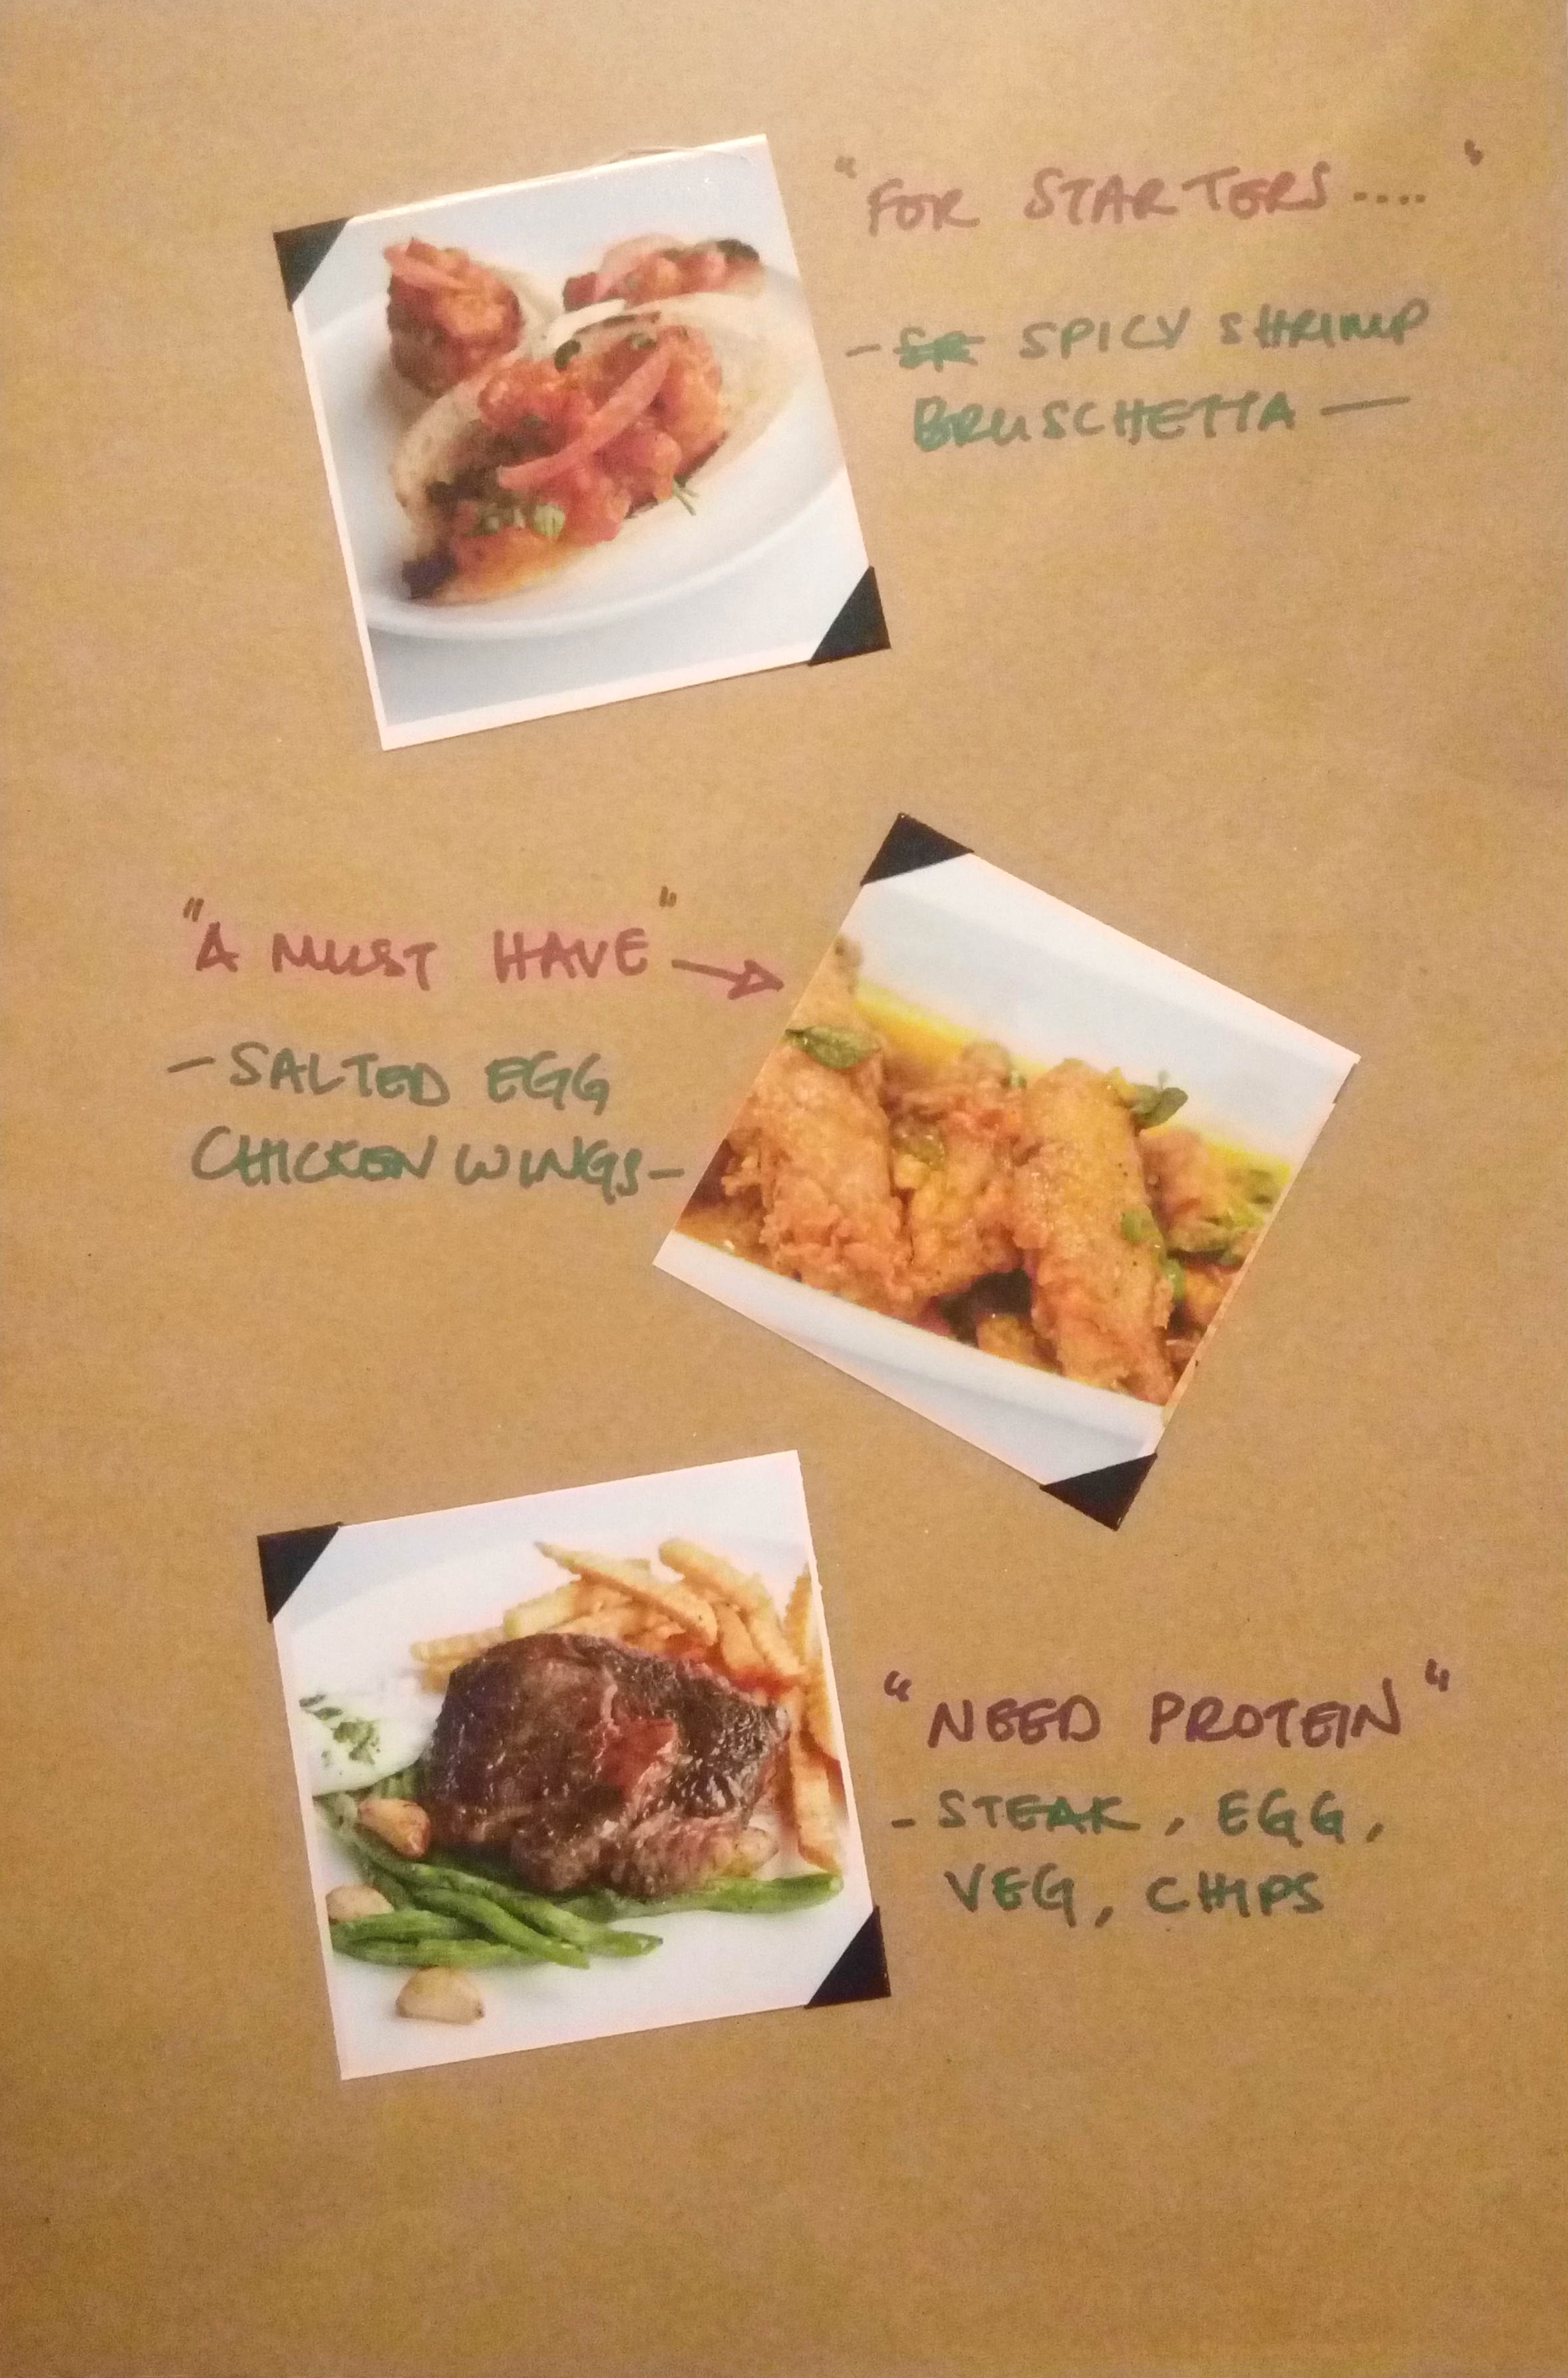 "FOR STARTERS....."
- SPICY SHRIMP
BRUSCHETTA —
"A MUST HAVE"
- SALTED EGG
CHICKEN WINGS -
"NEED PROTEIN"
- STEAK, EGG,
VEG, CHIPS